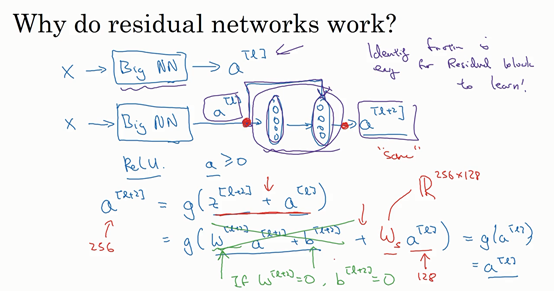 Why do residual networks work?
X → Big NN → a^[l]
Identity function is
easy for Residual block
to learn!
X → Big NN → a^[l] → a^[l+2]
"same"
ReLU. a ≥ 0
ℝ^256×128
a^[l+2] = g(z^[l+2] + a^[l])
256
= g(W^[l+2] a^[l+1] + b^[l+2] + W_s a^[l]) = g(a^[l])
128
= a^[l]
If W^[l+2]=0, b^[l+2]=0